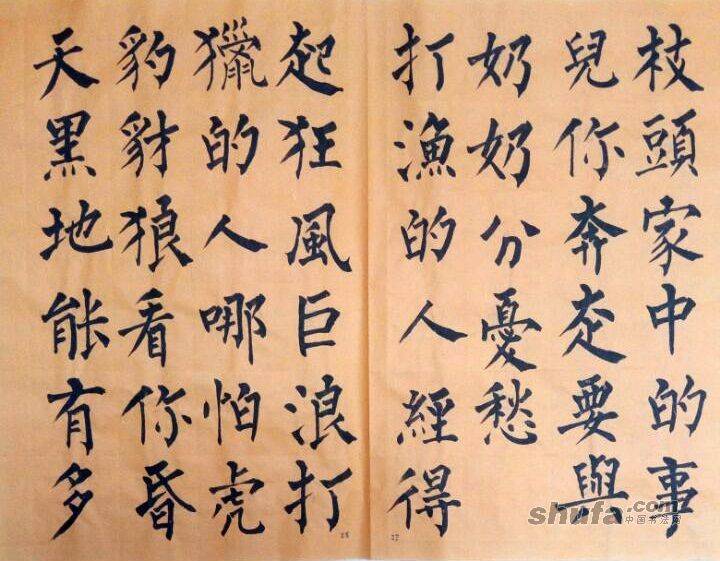 枝頭家中的事
兒你奔走要與
奶奶分憂愁
打漁的人經得
起狂風巨浪打
獵的人哪怕虎
豹豺狼看你昏
天黑地能有多
28
27
shufa.com
中国书法网